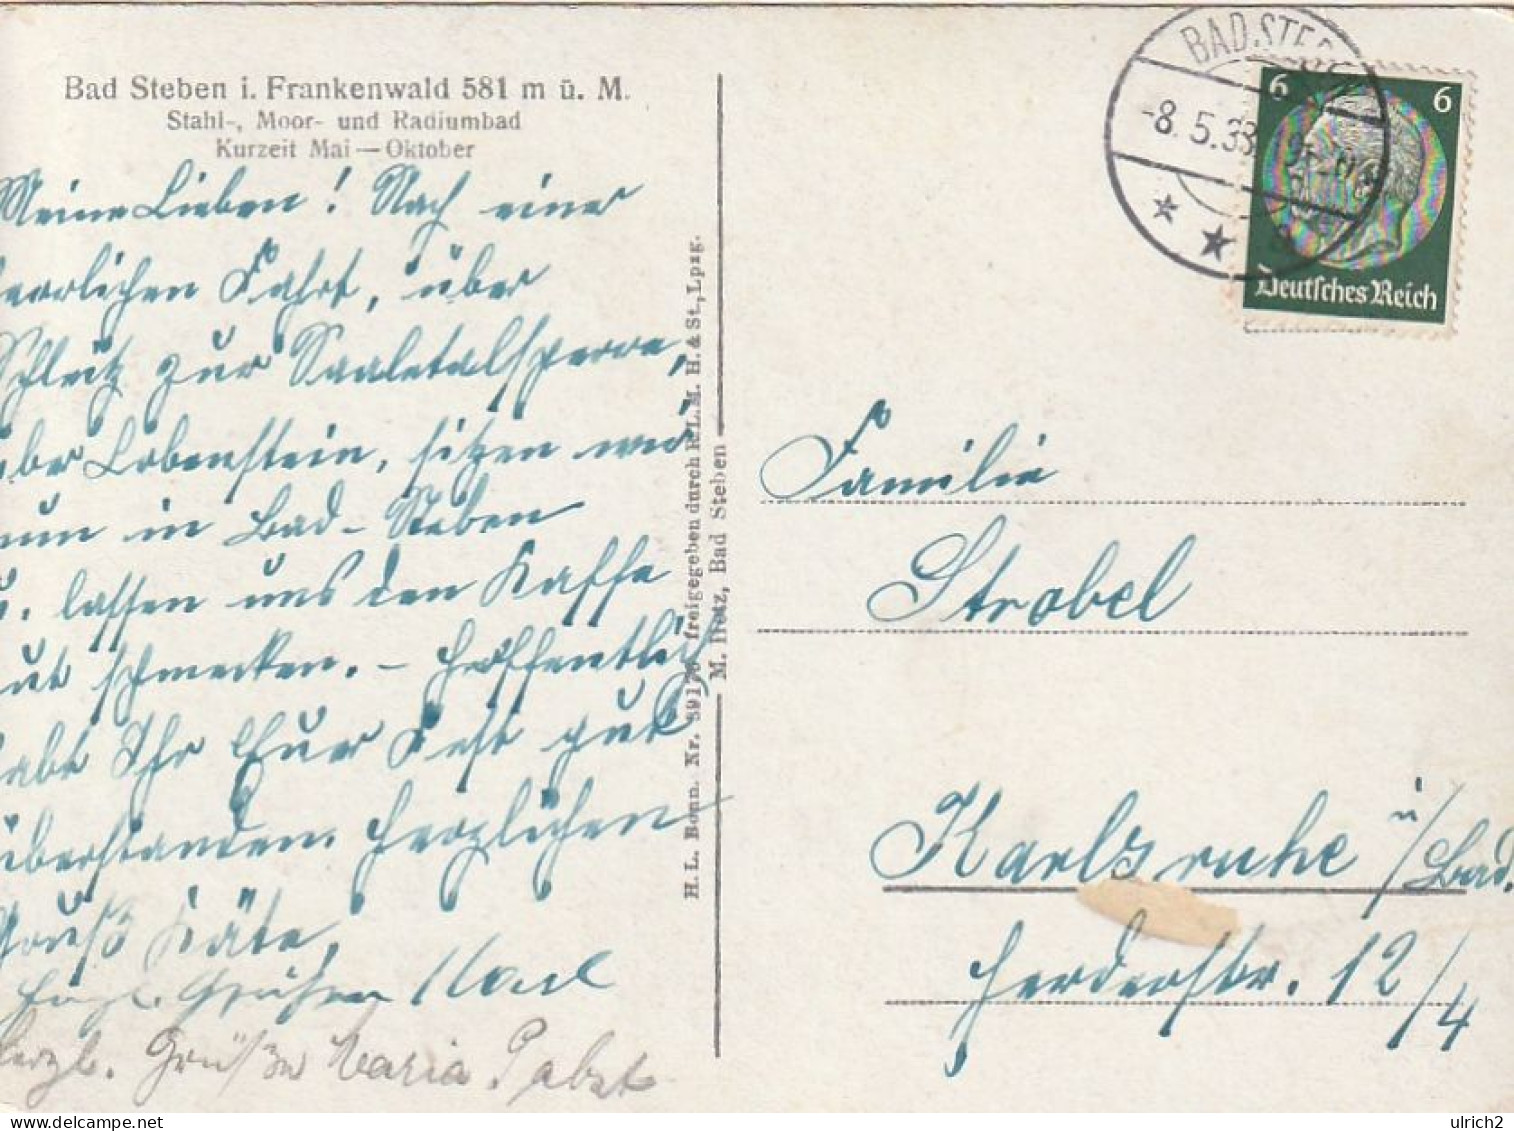 Bad Steben i. Frankenwald 581 m ü. M.
Stahl-, Moor- und Radiumbad
Kurzeit Mai — Oktober
Meine Lieben! Nach einer
herrlichen Fahrt, über
Schleiz zur Saaletalsperre,
über Lobenstein, sitzen wir
nun in Bad-Steben
u. lassen uns den Kaffe
gut schmecken. – Hoffentlich
habt Ihr Euer Fest gut
überstanden. Herzlichen
Gruß Käte,
Herzl. Grüße Karl
Herzl. Grüße Maria Pabst
H. L. Bonn. Nr. freigegeben durch R.L.M. H. & St., Lpzg.
M. Hotz, Bad Steben
BAD STEB
-8.5.38
6 6
Deutsches Reich
Familie
Strobel
Karlsruhe i/Bad.
Herderstr. 12/4
ulrich2